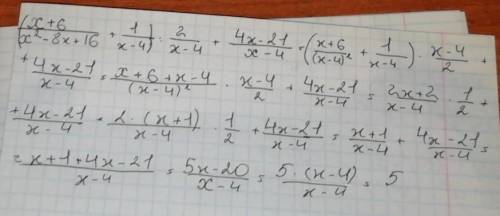 (x+6/x²-8x+16 + 1/x-4) : 2/x-4 + 4x-21/x-4 = (x+6/(x-4)² + 1/x-4) · x-4/2 +
+ 4x-21/x-4 = x+6+x-4/(x-4)² · x-4/2 + 4x-21/x-4 = 2x+2/x-4 · 1/2 +
+ 4x-21/x-4 = 2·(x+1)/x-4 · 1/2 + 4x-21/x-4 = x+1/x-4 + 4x-21/x-4 =
= x+1+4x-21/x-4 = 5x-20/x-4 = 5·(x-4)/x-4 = 5